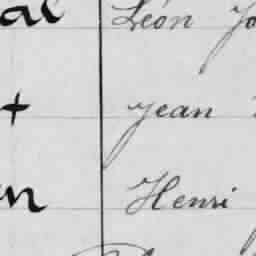 al Léon Jo
t Jean
en Henri